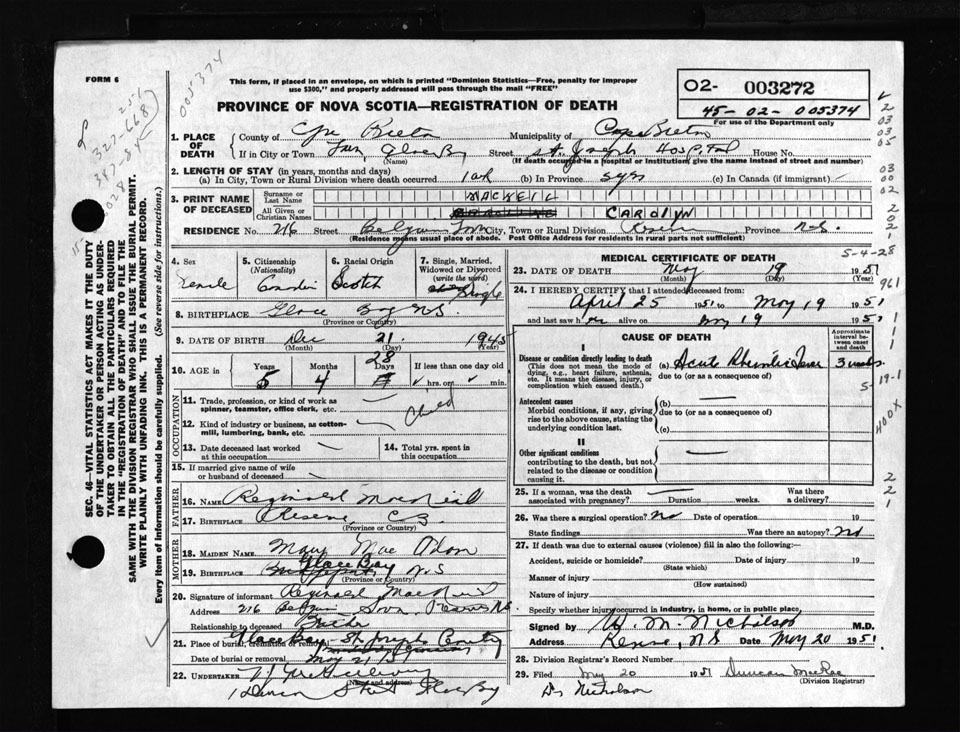 FORM 6
005374
This form, if placed in an envelope, on which is printed "Dominion Statistics—Free, penalty for improper
use $300," and properly addressed will pass through the mail "FREE"
PROVINCE OF NOVA SCOTIA—REGISTRATION OF DEATH
02- 003272
45-02-005374
For use of the Department only
1. PLACE OF DEATH
County of Cape Breton Municipality of Cape Breton
If in City or Town Glace Bay Street St. Joseph Hospital House No.
(Name) (If death occurred in a hospital or institution, give the name instead of street and number)
2. LENGTH OF STAY (in years, months and days)
(a) In City, Town or Rural Division where death occurred (b) In Province 5 yrs (c) In Canada (if immigrant) —
3. PRINT NAME OF DECEASED
Surname or Last Name MACNEIL
All Given or Christian Names CAROLYN
RESIDENCE No. 216 Belgium Town City, Town or Rural Division Reserve Province N.S.
(Residence means usual place of abode. Post Office Address for residents in rural parts not sufficient)
4. Sex Female
5. Citizenship (Nationality)
6. Racial Origin Scotch
7. Single, Married, Widowed or Divorced (write the word) Single
8. BIRTHPLACE Glace Bay N.S.
(Province or Country)
9. DATE OF BIRTH Dec 21 1945
(Month) (Day) (Year)
10. AGE in Years Months Days If less than one day old
5 4 28 hrs. or min.
OCCUPATION
11. Trade, profession, or kind of work as spinner, teamster, office clerk, etc. —
Child
12. Kind of industry or business, as cotton-mill, lumbering, bank, etc. —
13. Date deceased last worked at this occupation
14. Total yrs. spent in this occupation
15. If married give name of wife or husband of deceased
FATHER
16. NAME Reginald MacNeil
17. BIRTHPLACE Reserve, C.B.
(Province or Country)
MOTHER
18. MAIDEN NAME Mary Mac Adam
19. BIRTHPLACE Glace Bay N.S
(Province or Country)
20. Signature of informant Reginald MacNeil
Address 216 Belgium Town, Reserve NS
Relationship to deceased Father
21. Place of burial, cremation or removal Glace Bay - St. Josephs
Date of burial or removal May 21/51
22. UNDERTAKER
(Name and Address)
Street Glace Bay
MEDICAL CERTIFICATE OF DEATH
5-4-28
23. DATE OF DEATH May 19 1951
(Month) (Day) (Year)
24. I HEREBY CERTIFY that I attended deceased from:
April 25 1951 to May 19 1951
and last saw her alive on May 19 1951
CAUSE OF DEATH
Approximate interval between onset and death
I
Disease or condition directly leading to death (a) Acute Rheumatic Fever 3 weeks
(This does not mean the mode of dying, e.g., heart failure, asthenia, etc. It means the disease, injury, or complication which caused death.)
due to (or as a consequence of)
Antecedent causes (b) —
Morbid conditions, if any, giving rise to the above cause, stating the underlying condition last.
due to (or as a consequence of)
(c)
II
Other significant conditions —
contributing to the death, but not related to the disease or condition causing it.
25. If a woman, was the death associated with pregnancy? — Duration weeks. Was there a delivery?
26. Was there a surgical operation? No Date of operation 19
State findings Was there an autopsy? No
27. If death was due to external causes (violence) fill in also the following:—
Accident, suicide or homicide? Date of injury 19
(State which)
Manner of injury
(How sustained)
Nature of injury
Specify whether injury occurred in industry, in home, or in public place,
Signed by M. Nicholson M.D.
Address Reserve, N.S Date May 20 1951
28. Division Registrar's Record Number
29. Filed May 20 1951 Duncan MacRae
(Division Registrar)
Dr Nicholson
SEC. 46—VITAL STATISTICS ACT MAKES IT THE DUTY
OF THE UNDERTAKER OR PERSON ACTING AS UNDER-
TAKER TO OBTAIN ALL THE PARTICULARS REQUIRED
IN THE "REGISTRATION OF DEATH" AND TO FILE THE
SAME WITH THE DIVISION REGISTRAR WHO SHALL ISSUE THE BURIAL PERMIT.
WRITE PLAINLY WITH UNFADING INK. THIS IS A PERMANENT RECORD.
Every item of information should be carefully supplied. (See reverse side for instructions.)